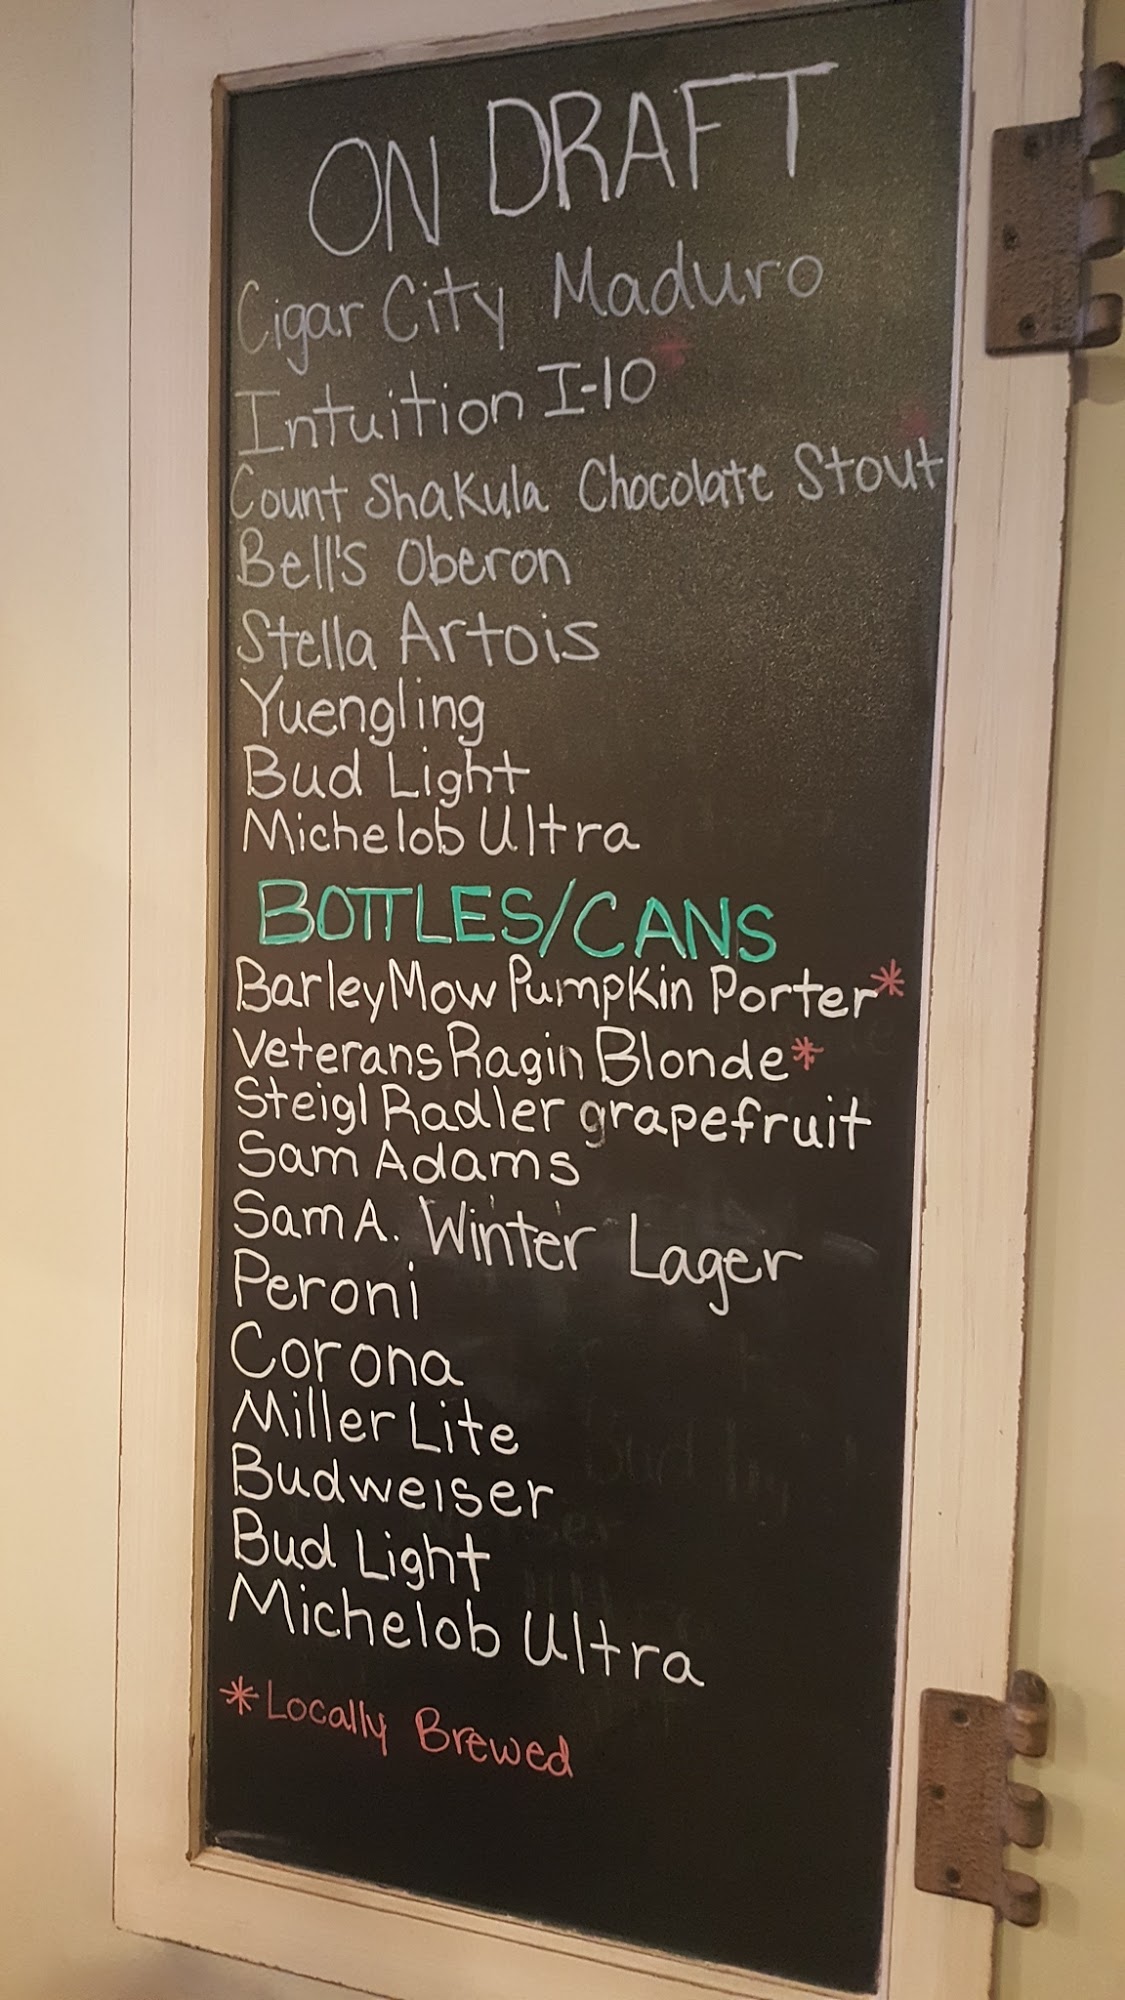 ON DRAFT
Cigar City Maduro
Intuition I-10*
Count Shakula Chocolate Stout*
Bell's Oberon
Stella Artois
Yuengling
Bud Light
Michelob Ultra
BOTTLES/CANS
Barley Mow Pumpkin Porter*
Veterans Ragin Blonde*
Steigl Radler grapefruit
Sam Adams
Sam A. Winter Lager
Peroni
Corona
Miller Lite
Budweiser
Bud Light
Michelob Ultra
*Locally Brewed